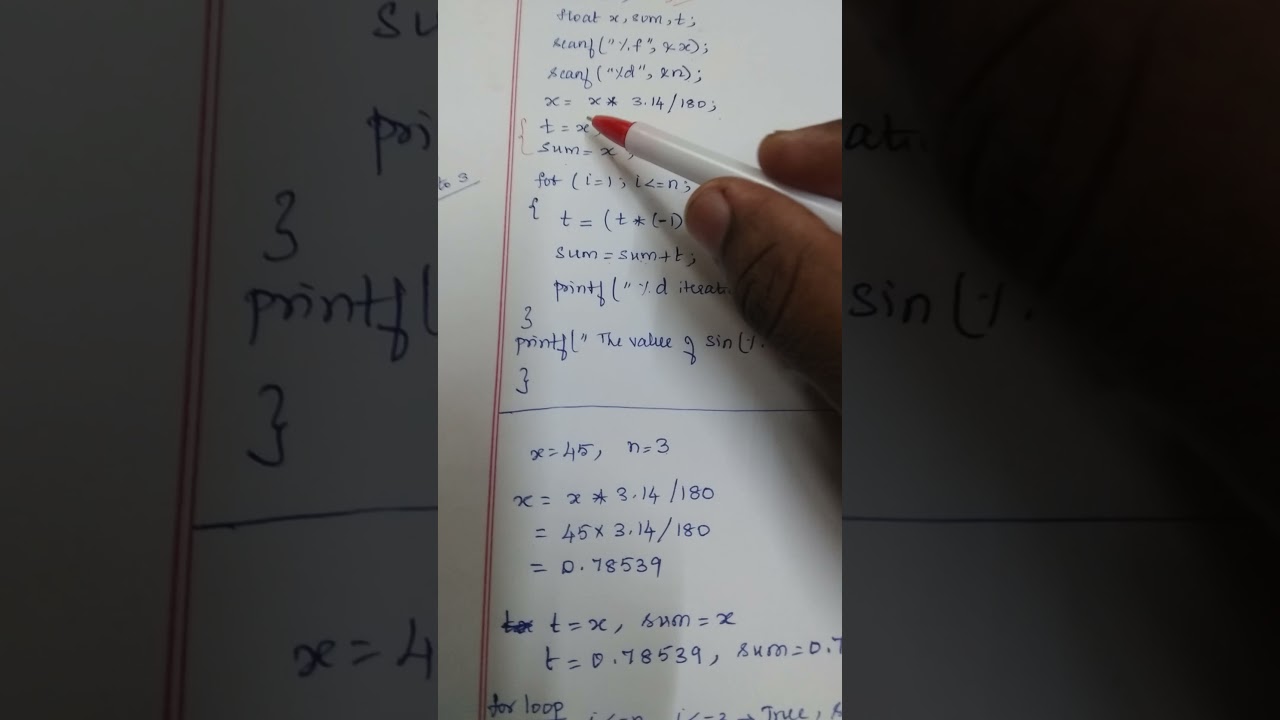 float x, sum, t;
scanf("%f", &x);
scanf("%d", &n);
x = x * 3.14/180;
{ t = x;
sum = x ;
for (i=1; i<=n;
{ t = (t * (-1)
sum = sum+t;
printf(" %d iterat
}
printf(" The value of sin(%.
}
x=45, n=3
x = x * 3.14/180
= 45 x 3.14/180
= 0.78539
t = x, sum = x
t = 0.78539, sum = 0.7
for loop
i<=n i<=3 → True,